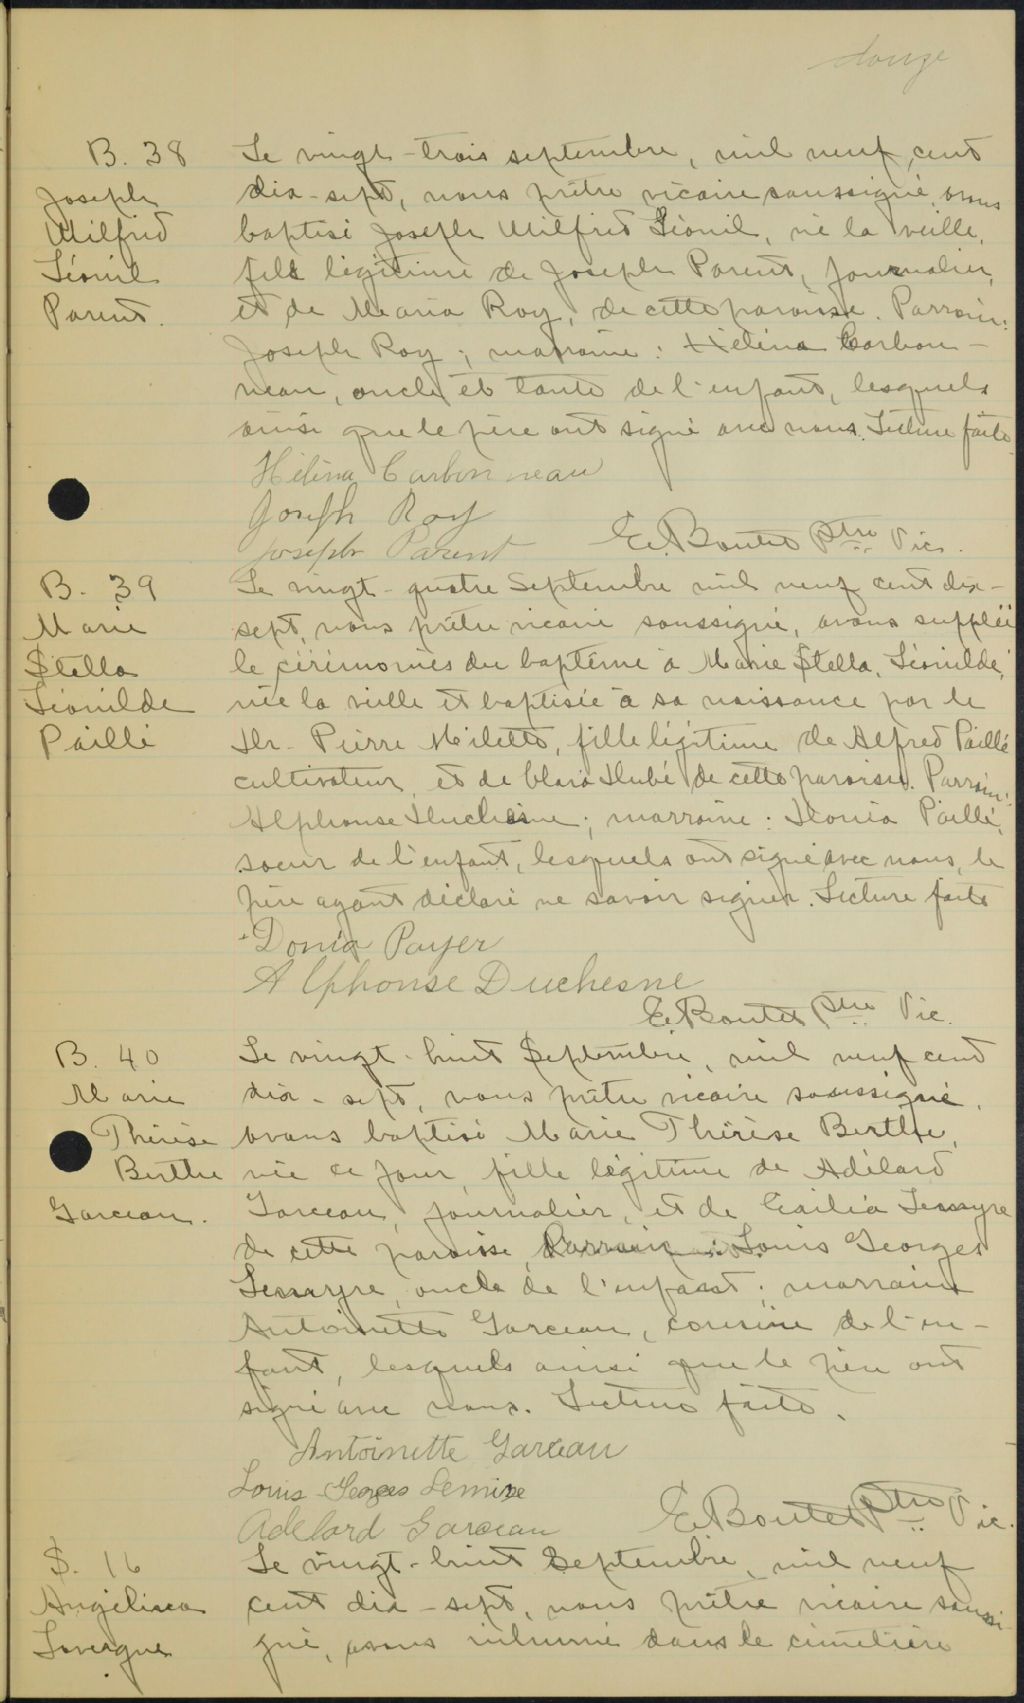 douze
B. 38
Joseph
Wilfrid
Léonil
Parent.
Le vingt-trois septembre, mil neuf cent
dix-sept, nous prêtre vicaire soussigné, avons
baptisé Joseph Wilfrid Léonil, né la veille,
fils légitime de Joseph Parent, journalier,
et de Maria Roy, de cette paroisse. Parrain:
Joseph Roy; marraine: Hélèna Carbon-
neau, oncle et tante de l'enfant, lesquels
ainsi que le père ont signé avec nous. Lecture faite
Hélèna Carbonneau
Joseph Roy
Joseph Parent E. Boutet ptre Vic.
B. 39
Marie
Stella
Léonilde
Paillé
Le vingt-quatre Septembre mil neuf cent dix-
sept, nous prêtre vicaire soussigné, avons suppléé
le cérémonies du baptême à Marie Stella, Léonilde,
née la veille et baptisée à sa naissance par le
Dr. Pierre Milette, fille légitime de Alfred Paillé
cultivateur, et de Clara Dubé de cette paroisse. Parrain:
Alphonse Duchesne; marraine: Donia Paillé,
soeur de l'enfant, lesquels ont signé avec nous, le
père ayant déclaré ne savoir signer. Lecture faite
Donia Payer
Alphonse Duchesne
E. Boutet ptre Vic.
B. 40
Marie
Thérèse
Berthe
Garceau.
Le vingt-huit Septembre, mil neuf cent
dix-sept, nous prêtre vicaire soussigné,
avons baptisé Marie Thérèse Berthe,
née ce jour, fille légitime de Adélard
Garceau, journalier, et de
de cette paroisse, Parrain: Louis Georges
oncle de l'enfant; marraine
Antoinette Garceau, cousine de l'en-
fant, lesquels ainsi que le père ont
signé avec nous. Lecture faite.
Antoinette Garceau
Louis Georges Lemire
Adélard Garceau E. Boutet Ptre Vic.
S. 16
Angélina
Lavergne
Le vingt-huit Septembre, mil neuf
cent dix-sept, nous prêtre vicaire soussi-
gné, avons inhumé dans le cimetière